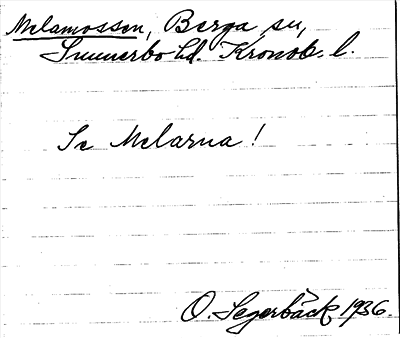 Melamossen, Berga sn,
Sunnerbo hd. Kronob. l.
Se Melarna!
O. Segerbäck 1936.